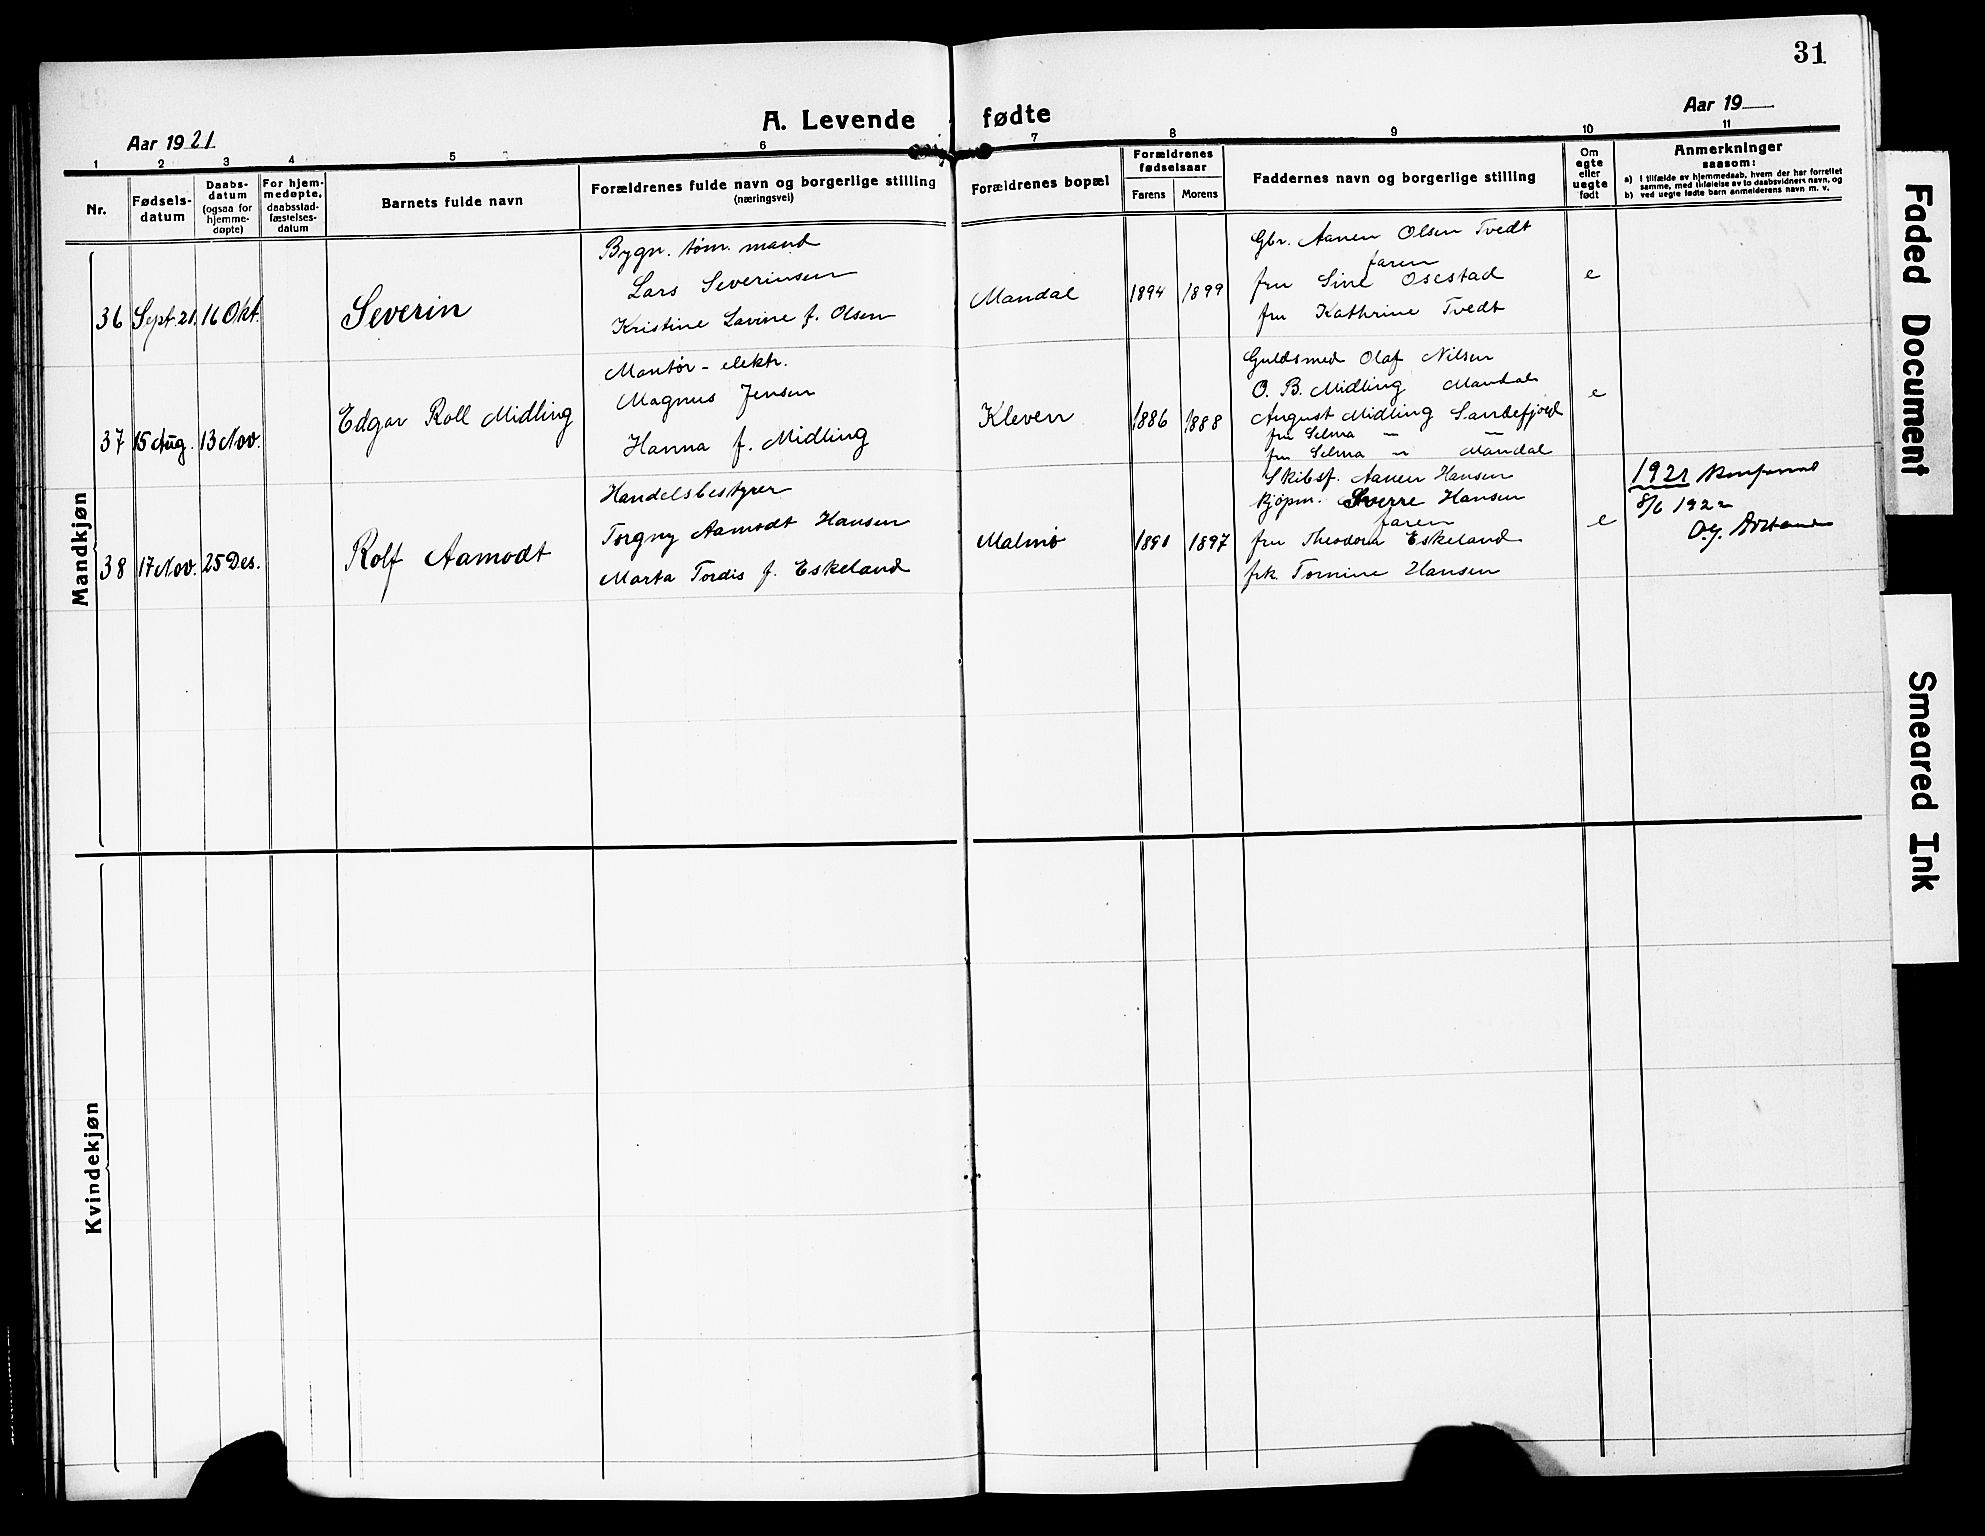 31
A. Levende fødte
Aar 1921
Aar 19
1 2 3 4 5 6 7 8 9 10 11
Nr.
Fødsels-
datum
Daabs-
datum
(ogsaa for
hjemme-
døpte)
For hjem-
medøpte,
daabsstad-
fæstelses-
datum
Barnets fulde navn
Forældrenes fulde navn og borgerlige stilling
(næringsvei)
Forældrenes bopæl
Forældrenes
fødselsaar
Farens Morens
Faddernes navn og borgerlige stilling
Om
egte
eller
uegte
født
Anmerkninger
saasom:
a) i tilfælde av hjemmedaab, hvem der har forrettet
samme, med tilføielse av to daabsvidners navn, og
b) ved uegte fødte barn anmelderens navn m. v.
Mandkjøn
36 Sept. 21. 16 Okt. Severin
Bygn. tøm. mand
Lars Severinsen
Kristine Lavine f. Olsen
Mandal 1894 1899
Gbr. Aanen Olsen Tvedt
faren
fru Sine Osestad
fru Kathrine Tvedt
e
37 15 Aug. 13 Nov. Edgar Roll Midling
Montør - elektr.
Magnus Jensen
Hanna f. Midling
Kleven 1886 1888
Guldsmed Olaf Nilsen
O. B. Midling Mandal
August Midling Sandefjord
fru Selma " "
fru Selma " Mandal
e
38 17 Nov. 25 Des. Rolf Aamodt
Handelsbestyrer
Torgny Aamodt Hansen
Marta Tordis f. Eskeland
Malmø 1891 1897
Skibsf. Aanen Hansen
kjøpm. Sverre Hansen
faren
fru Theodora Eskeland
frk. Tomine Hansen
e
1921
8/6 1922
O.G.
Kvindekjøn
Faded Document
Smeared Ink